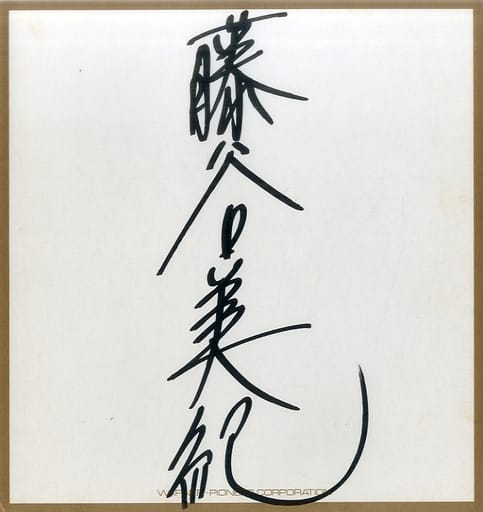 藤谷美紀
WARNER-PIONEER CORPORATION